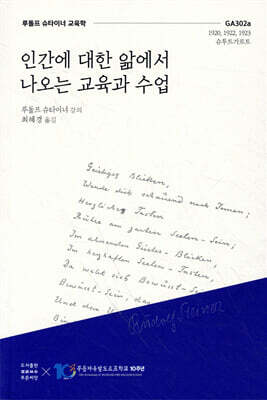 루돌프 슈타이너 교육학
GA302a
1920, 1922, 1923
슈투트가르트
인간에 대한 앎에서
나오는 교육과 수업
루돌프 슈타이너 강의
최혜경 옮김
Geistiges Blicken,
Wende dich schauend nach Innen;
Herzliches Tasten
Rühre am zarten Seelen-Sein;
Im ahnenden Geistes-Blicken,
Im herzhaften Seelen-Tasten,
Da webt sich Bewusst-Sein,
Bewusst-Sein, das
Und dem
Rudolf Steiner
도서출판
푸른씨앗
×
10
푸른자유발도르프학교 10주년